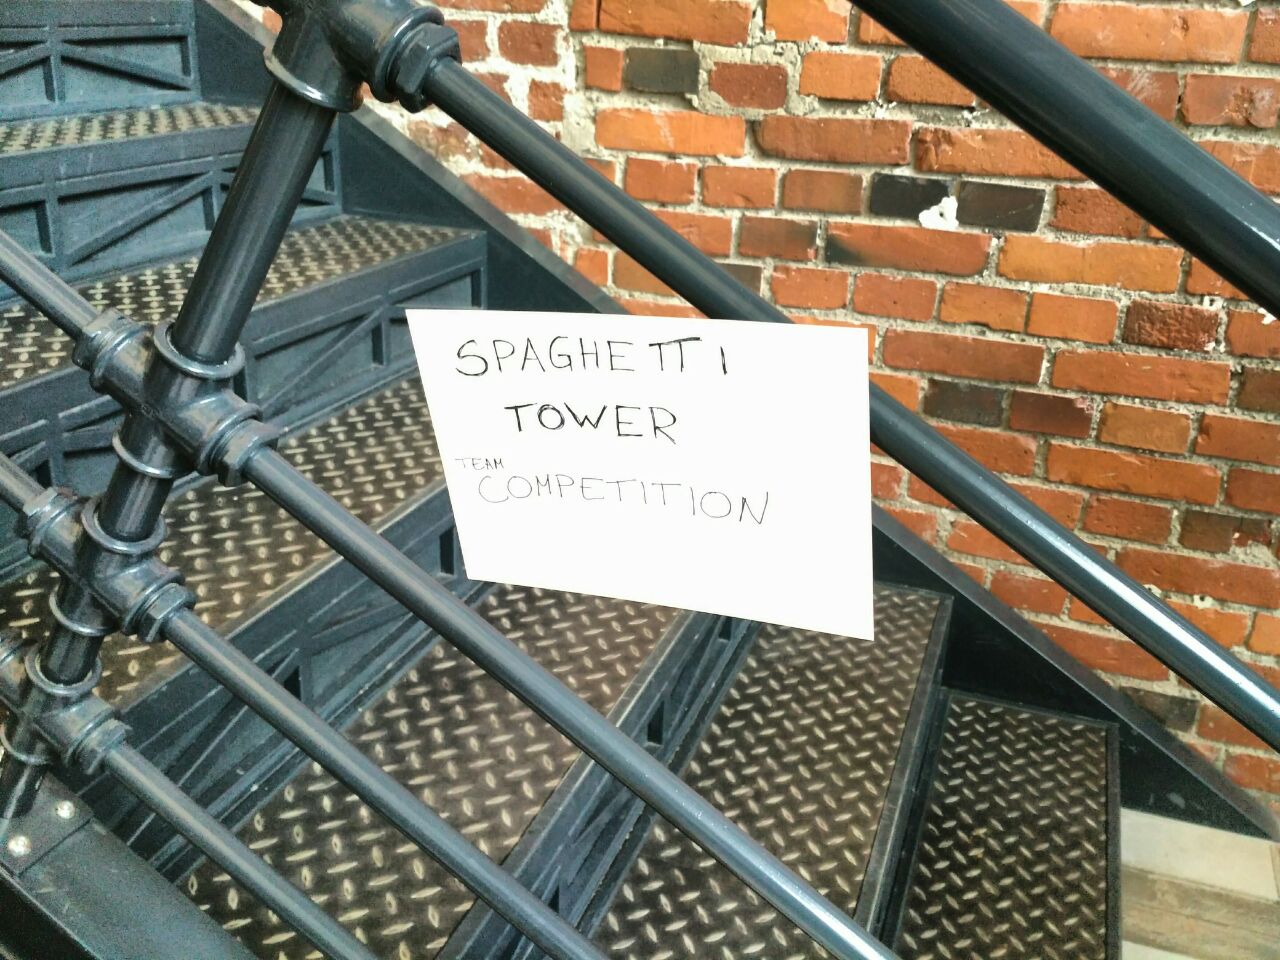 SPAGHETTI
TOWER
TEAM
COMPETITION